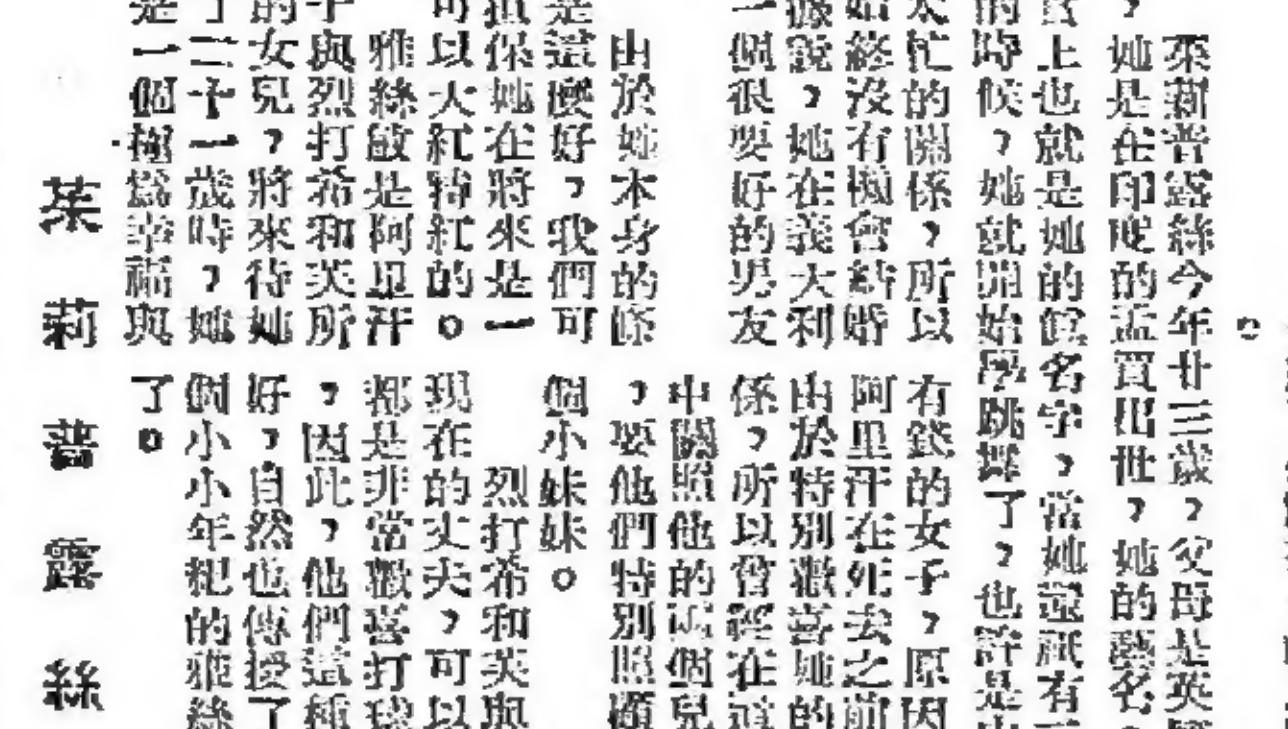 。
茱莉普露絲今年廿三歲，父母是英
，她是在印度的孟買出世，她的藝名，
上也就是她的館名字，當她還祇有
的時候，她就開始學跳舞了，也許是
太忙的關係，所以
始終沒有機會結婚
據說，她在義大利
一個很要好的男友
由於她本身的條
是這麼好，我們可
担保她在將來是一
可以大紅特紅的。
雅絲敏是阿里汗
子與烈打希和芙所
的女兒，將來待她
了二十一歲時，她
是一個極為幸福與
有錢的女子，原因
阿里汗在死去之前
由於特別歡喜她的
係，所以曾經在
中關照他的兩個兒
，要他們特別照顧
個小妹妹。
烈打希和芙與
現在的丈夫，可以
都是非常歡喜打球
，因此，他們這種
好，自然也傳授了
個小小年紀的雅絲
了。
茱莉普露絲